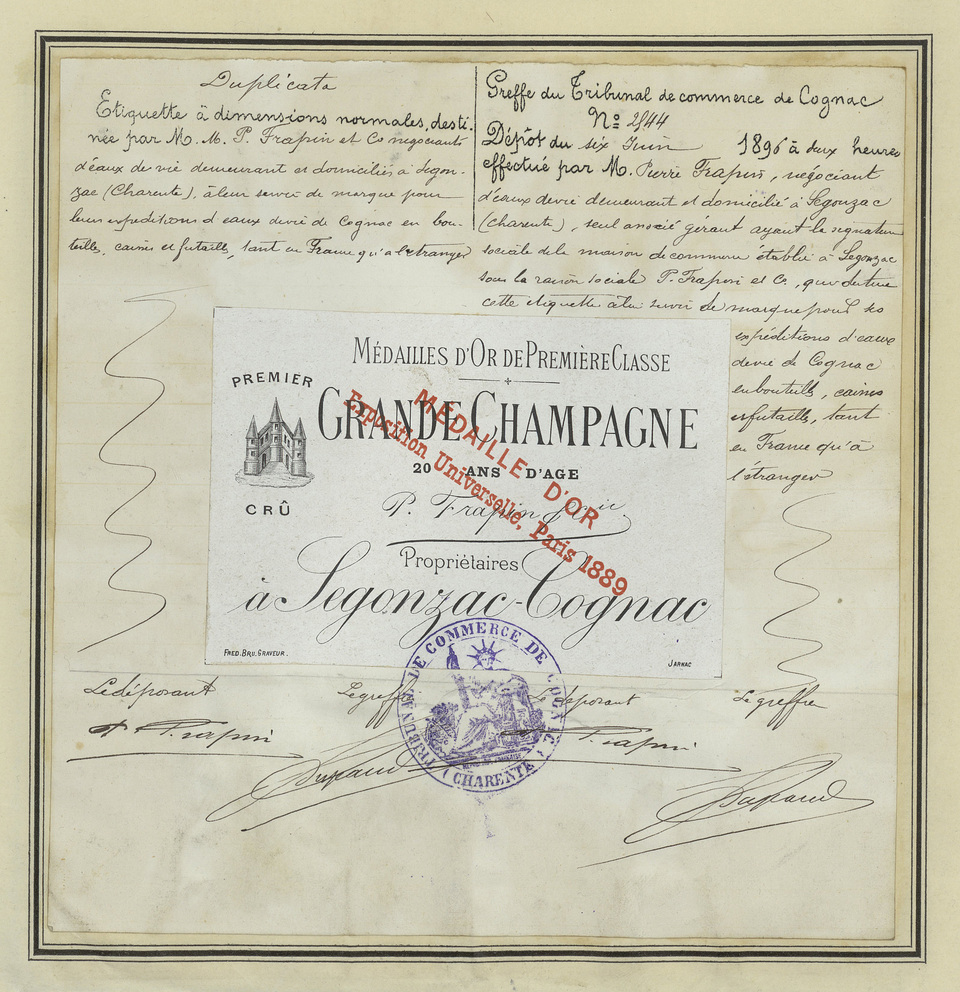 Duplicata
Etiquette à dimensions normales, desti-
née par M. M. P. Frapin et Co négociants
d'eaux de vie demeurant et domiciliés à Segon-
zac (Charente), à leur servir de marque pour
leurs expéditions d'eaux de vie de Cognac en bou-
teilles, caisses et futailles, tant en France qu'à l'étranger
Greffe du Tribunal de commerce de Cognac
No 2544
Dépôt du six Juin 1896 à deux heures
effectué par M. Pierre Frapin, négociant
d'eaux de vie demeurant et domicilié à Segonzac
(Charente), seul associé gérant ayant la signature
sociale de la maison de commerce établie à Segonzac
sous la raison sociale P. Frapin et Co, qui destine
cette etiquette à lui servir de marque pour ses
expéditions d'eaux
de vie de Cognac
en bouteilles, caisses
et futailles, tant
en France qu'à
l'étranger
MÉDAILLES D'OR DE PREMIÈRE CLASSE
PREMIER
CRÛ
GRANDE CHAMPAGNE
20 ANS D'AGE
P. Frapin & Cie
Propriétaires
à Segonzac-Cognac
MÉDAILLE D'OR
Exposition Universelle, Paris 1889
FRED. BRU. GRAVEUR.
JARNAC
Le déposant Le greffier Le déposant Le greffier
P. Frapin P. Frapin
TRIBUNAL DE COMMERCE DE COGNAC
(CHARENTE)